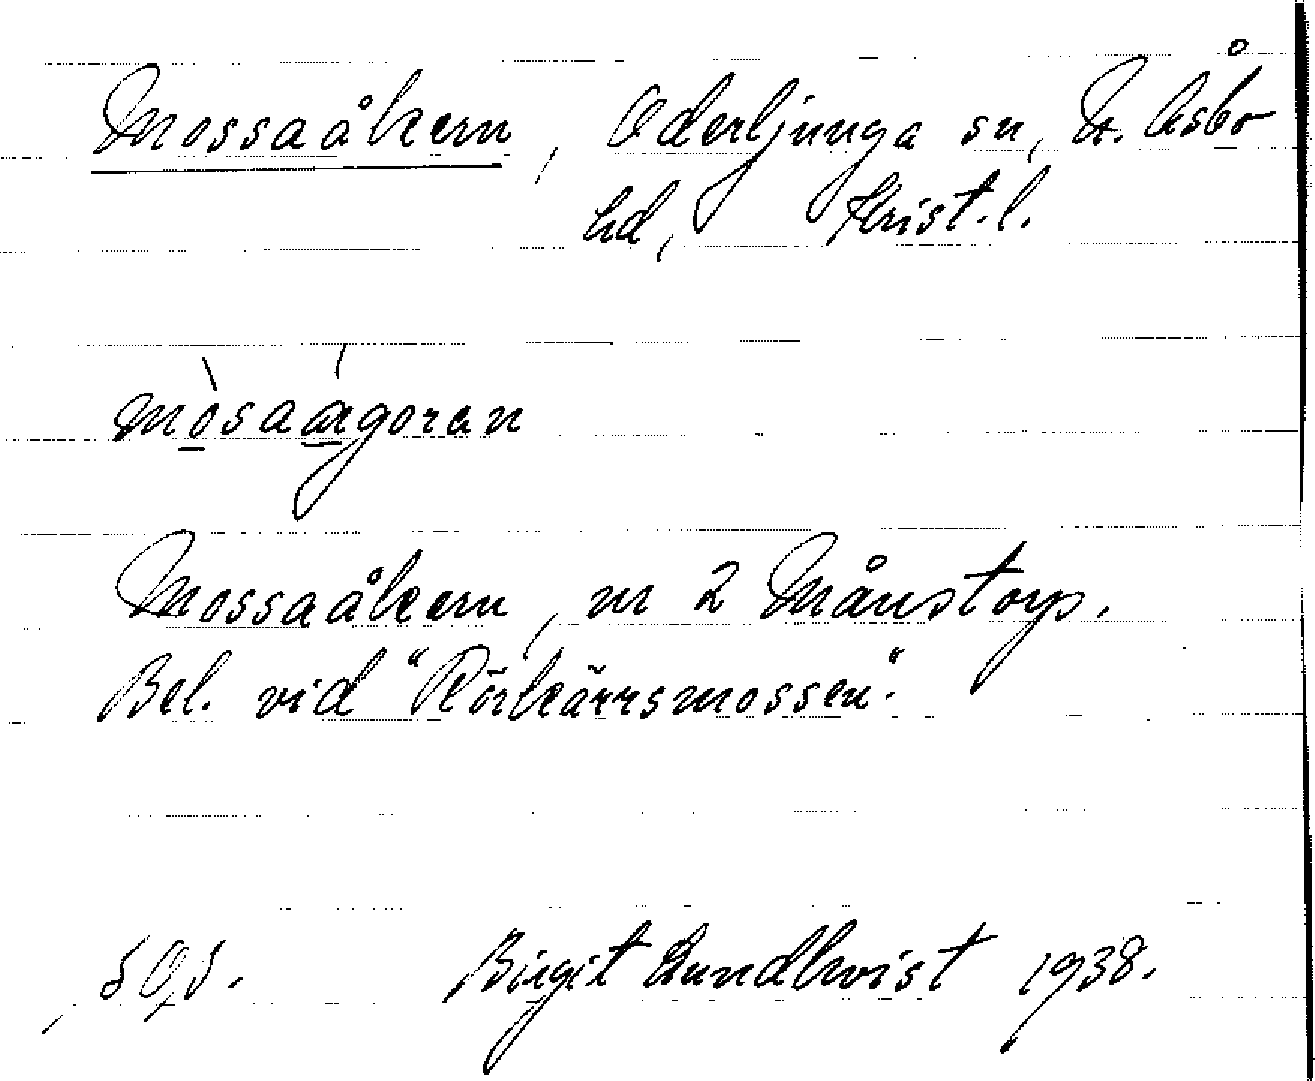 Mossaåkern, Oderljunga sn, N. Åsbo
hd, Krist. l.
mòsaágoran
Mossaåkern, nr 2 Månstorp.
Bel. vid "Rörkärrsmossen".
Birgit Lundkvist 1938.